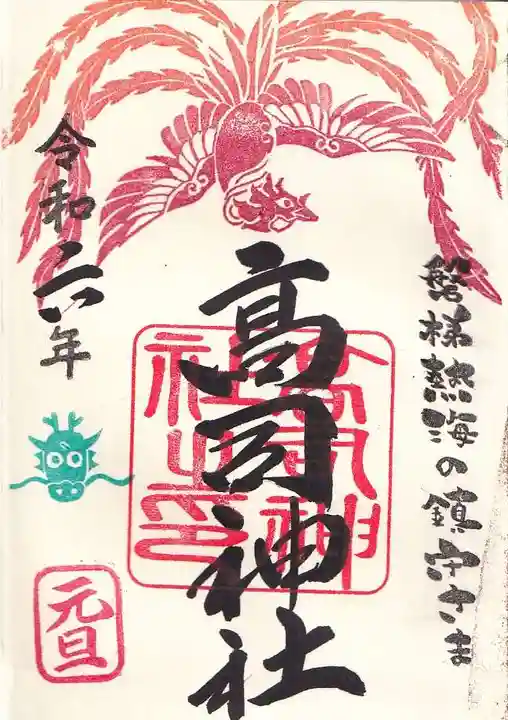 磐梯熱海の鎮守さま
高司神社
高司神
社之印
令和六年
元旦